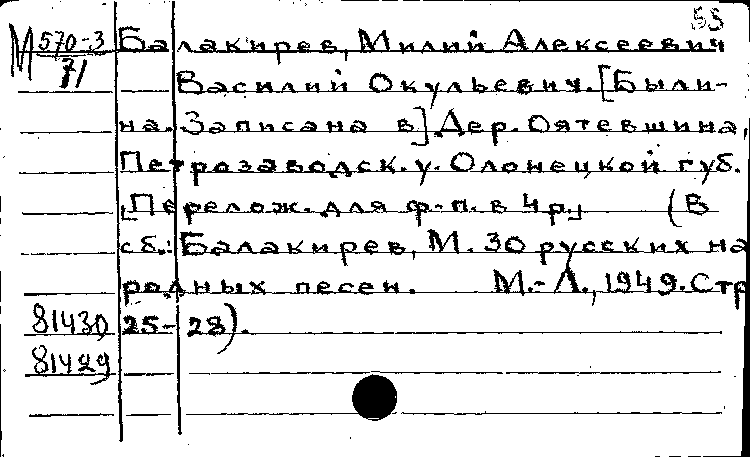 53
М 570-3 Балакирев, Милий Алексеевич
71 Василий Окульевич. [Были-
на. Записана в] Дер. Оятевшина,
Петрозаводск. у. Олонецкой губ.
[Перелож. для ф-п. в 4 р.] (В
сб.: Балакирев, М. 30 русских на
родных песен. М.-Л., 1949. Стр
81430 25-28).
81429